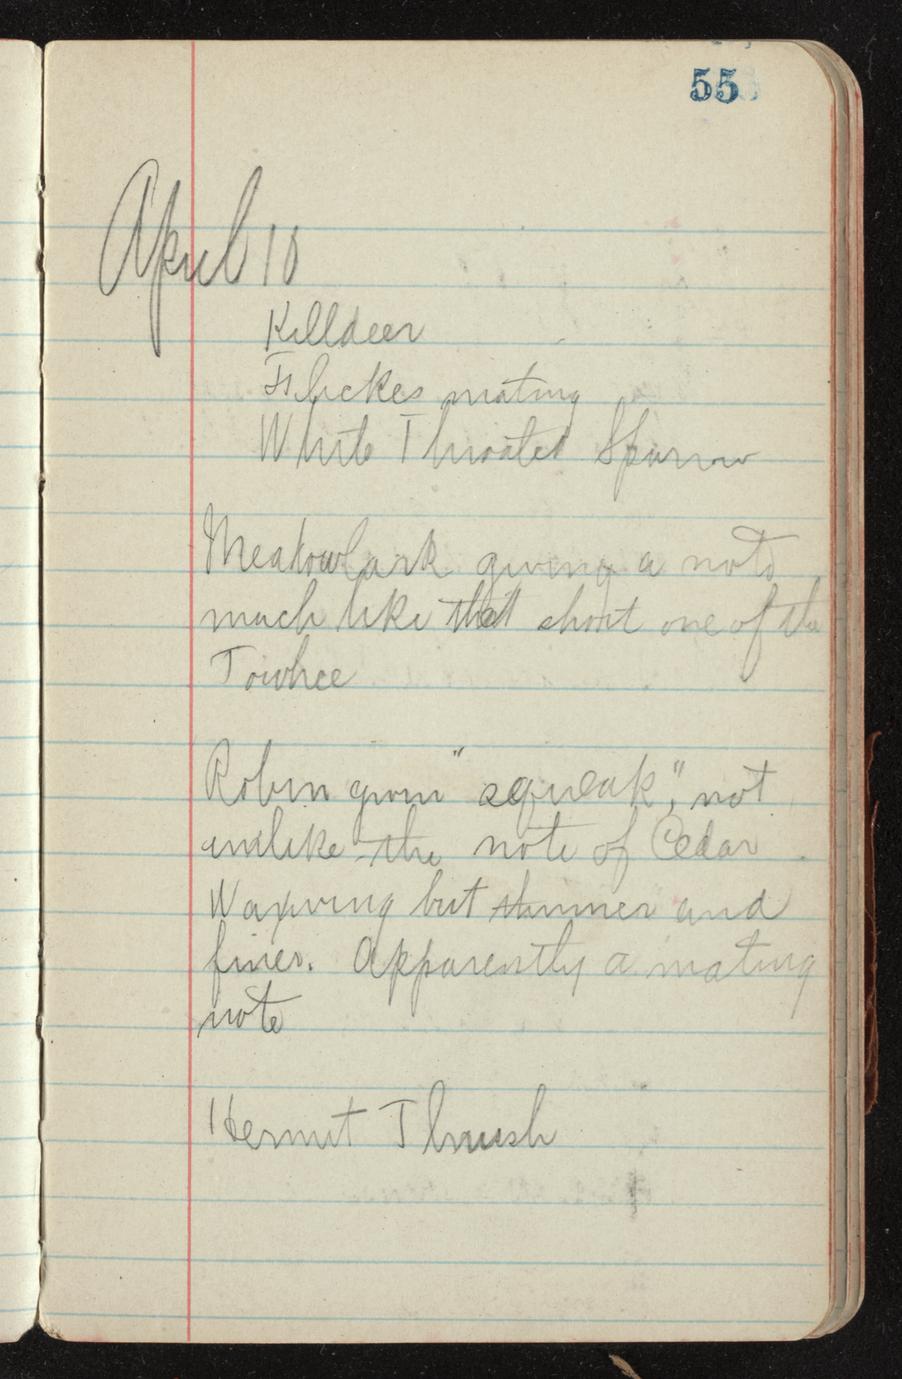 55
April 10
Killdeer
Flickes mating
White Throated Sparrow
Meadowlark giving a note
much like that short one of the
Towhee
Robin givin "squeak", not
unlike the note of Cedar
Waxwing but thinner and
finer. Apparently a mating
note
Hermit Thrush